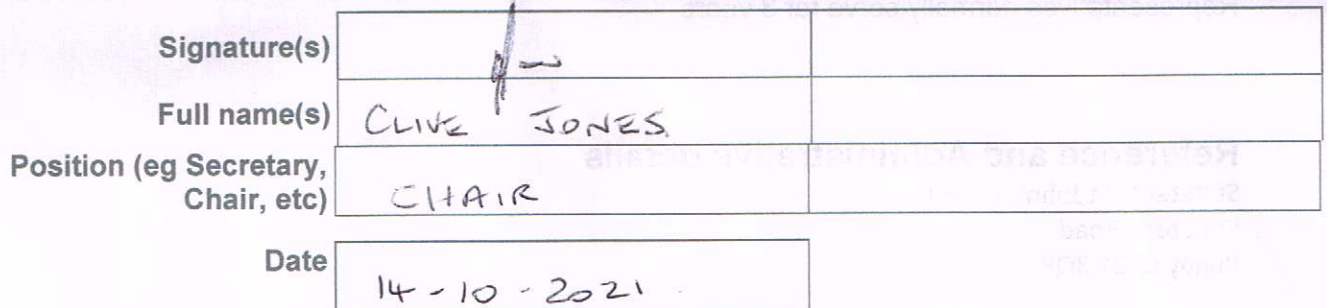 Signature(s)
Full name(s) CLIVE JONES
Position (eg Secretary,
Chair, etc) CHAIR
Date 14-10-2021